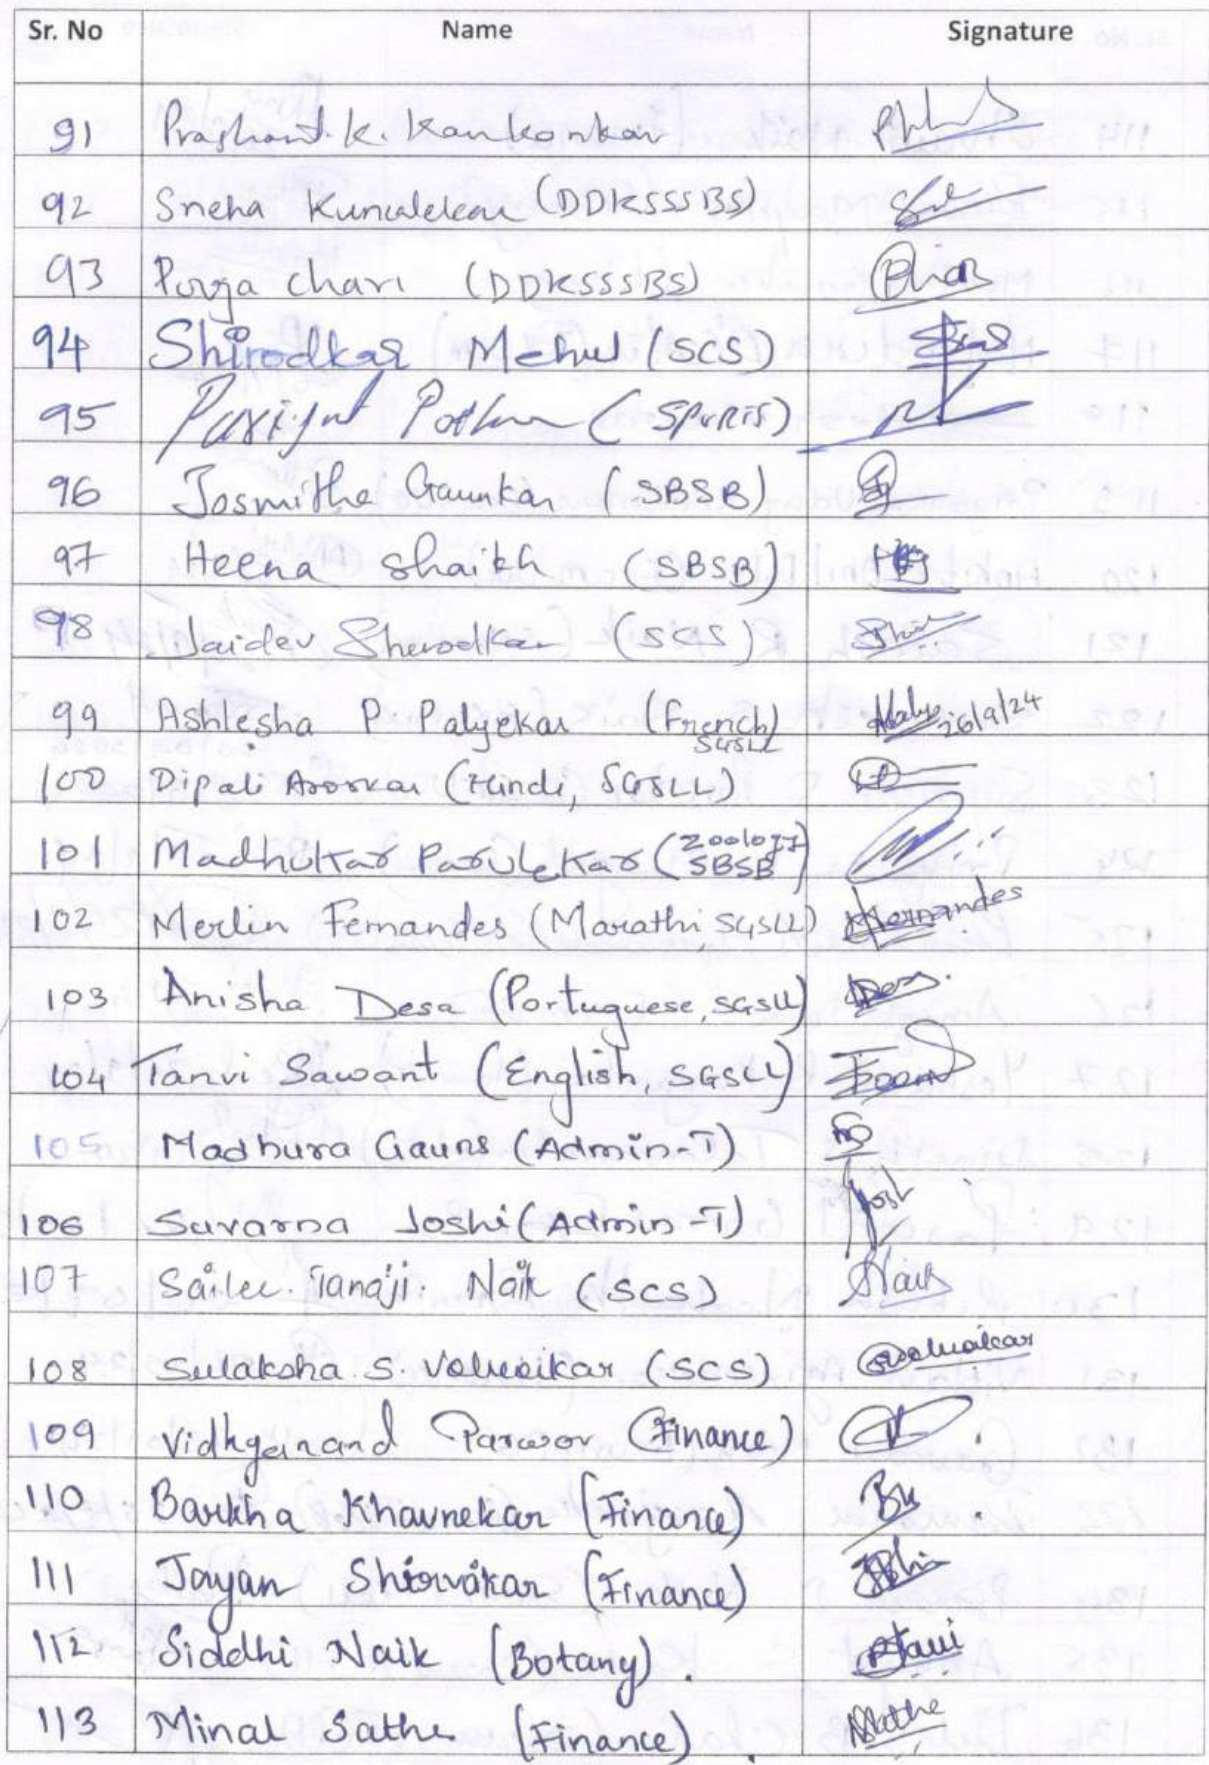 Sr. No Name Signature
91 Prashant. K. Kankonkar
92 Sneha Kunkalekar (DDKSSSBS)
93 Pooja Chari (DDKSSSBS)
94 Shirodkar Mehul (SCS)
95 Parijat (SPURIS)
96 Josmitha Gaunkar (SBSB)
97 Heena Shaikh (SBSB)
98 Jaidev Sherodkar (SCS)
99 Ashlesha P Palyekar (French) 26/9/24
SGSLL
100 Dipali Aroskar (Hindi, SGSLL)
101 Madhukar Parulekar (Zoology
SBSB)
102 Merlin Fernandes (Marathi, SGSLL) Fernandes
103 Anisha Desa (Portuguese, SGSLL)
104 Tanvi Sawant (English, SGSLL)
105 Madhura Gauns (Admin-T)
106 Suvarna Joshi (Admin-T)
107 Sailee. Tanaji. Naik (SCS) Naik
108 Sulaksha. S. (SCS)
109 Vidhyanand (Finance)
110 Barkha Khavnekar (Finance)
111 Jayan Shirvaikar (Finance)
112. Siddhi Naik (Botany).
113 Minal Sathe (Finance).